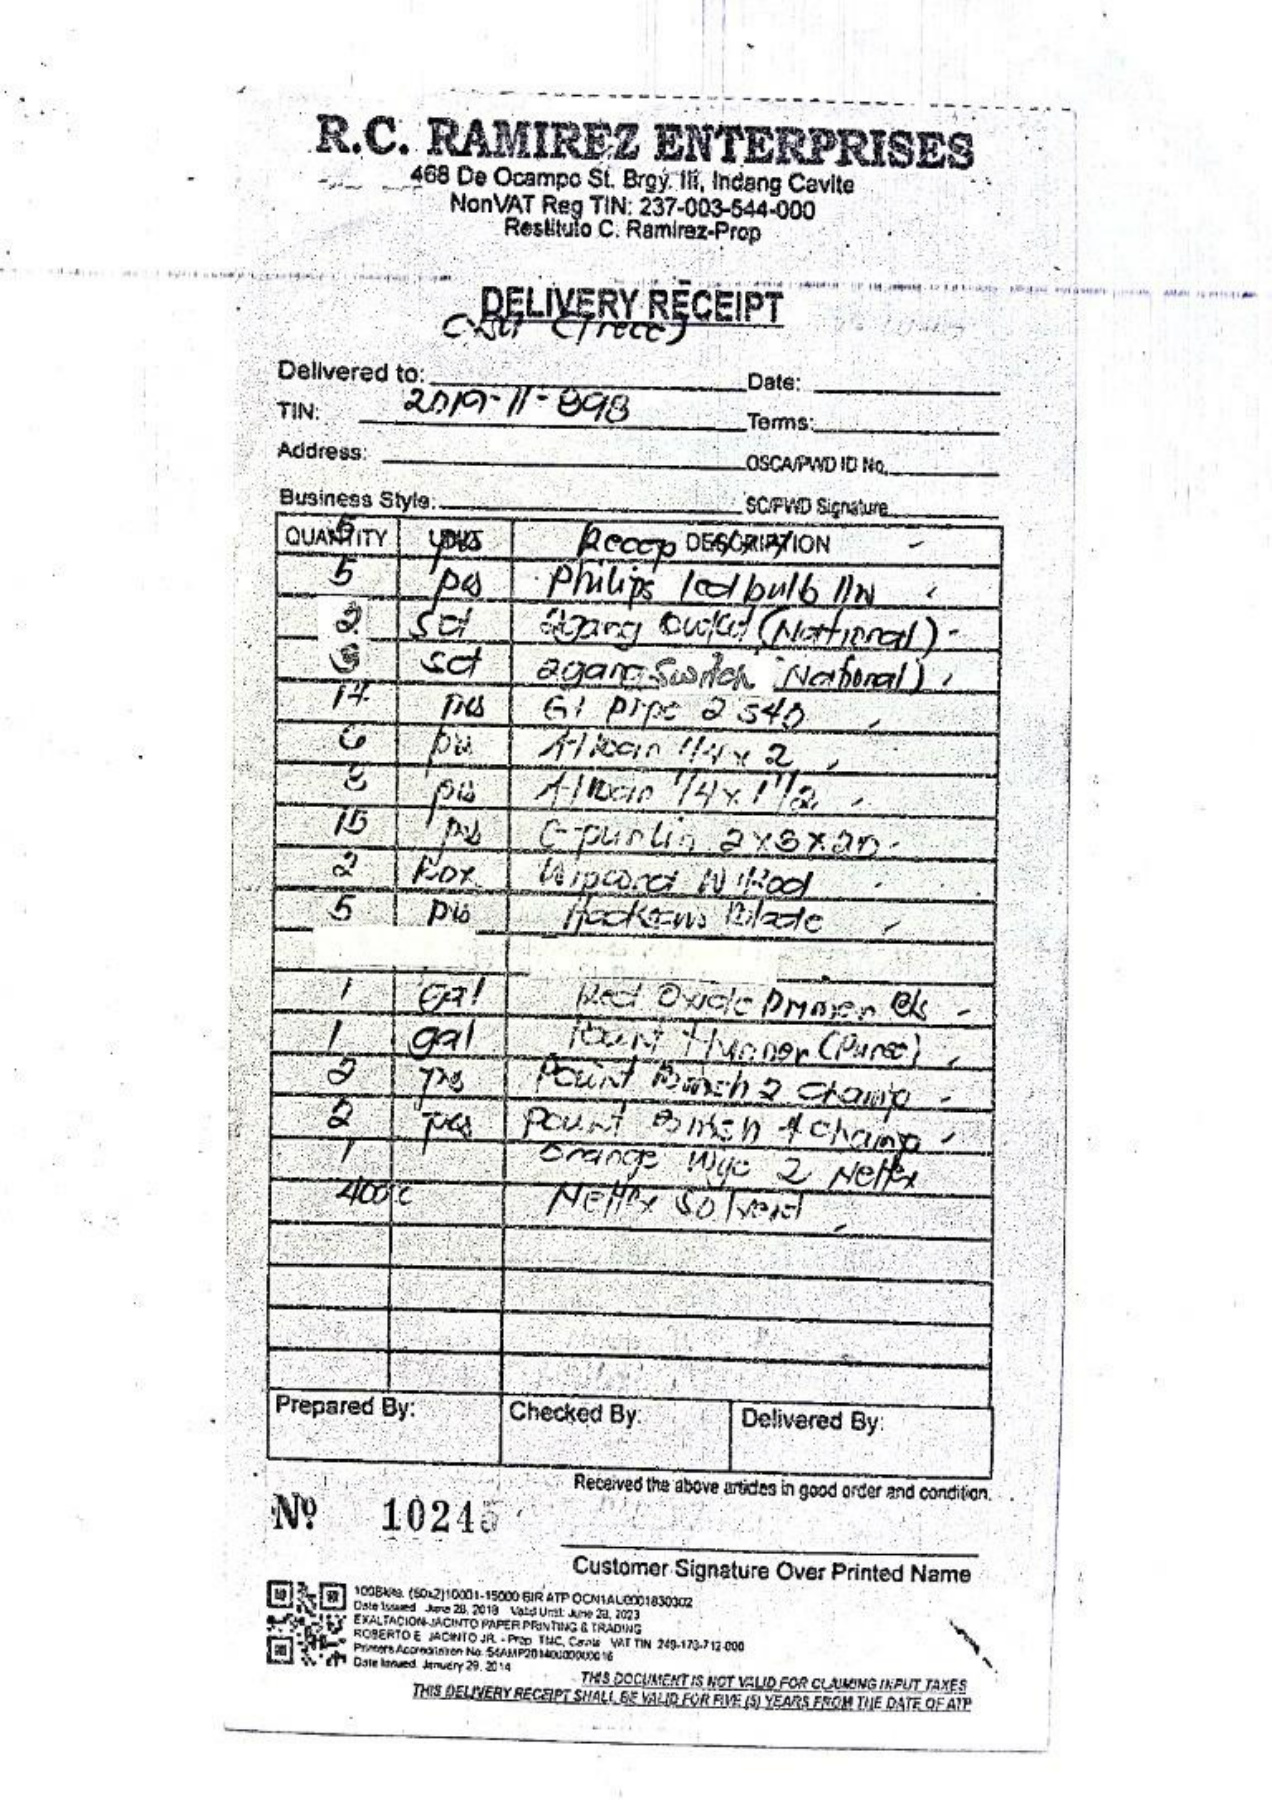 R.C. RAMIREZ ENTERPRISES
468 De Ocampo St. Brgy. III, Indang Cavite
NonVAT Reg TIN: 237-003-544-000
Restituto C. Ramirez-Prop
DELIVERY RECEIPT
(Trece)
Delivered to: Date:
TIN: 2019-11-898 Terms:
Address: OSCA/PWD ID No.
Business Style: SC/PWD Signature
QUANTITY DESCRIPTION
5 pcs Recep
5 pcs Philips led bulb 11W
2 set 2gang outlet (National)
set 2gang switch (National)
14 pcs GI pipe 2 S40
6 pcs 1/4 x 2
8 pcs 1/4 x 1 1/2
15 pcs C-purlin 2x3x20
2 Box Wipcord W.Rod
5 pcs Hacksaw Blade
1 Gal Red Oxide Primer
1 gal Paint Thinner (Puret)
2 pcs Paint Brush 2 Champ
2 pcs Paint Brush 4 Champ
1 Orange Wye 2 Neltex
400cc Neltex Solvent
Prepared By: Checked By: Delivered By:
Received the above articles in good order and condition.
Nº 10245
Customer Signature Over Printed Name
100Bkls. (50x2)10001-15000 BIR ATP OCN1AU0001830302
Date Issued June 28, 2018 Valid Until: June 28, 2023
EXALTACION-JACINTO PAPER PRINTING & TRADING
ROBERTO E. JACINTO JR. - Prop TMC, Cavite VAT TIN 249-173-712-000
Printers Accreditation No.
Date Issued. January 29, 2014
THIS DOCUMENT IS NOT VALID FOR CLAIMING INPUT TAXES
THIS DELIVERY RECEIPT SHALL BE VALID FOR FIVE (5) YEARS FROM THE DATE OF ATP